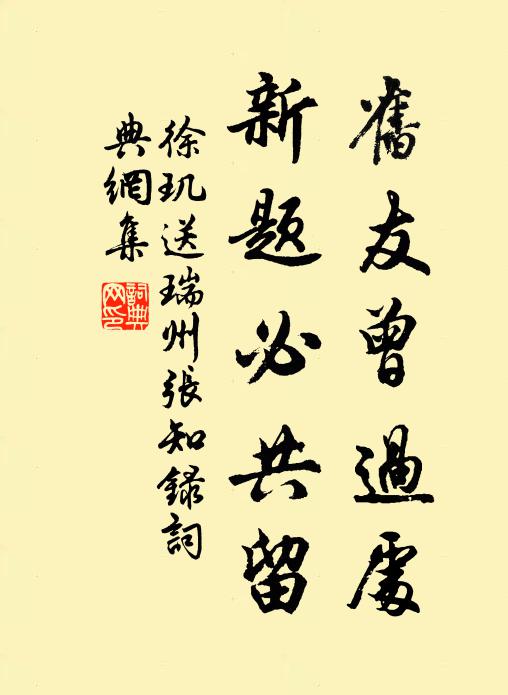 舊友曾過處
新題必共留
徐玑送瑞州張知錄詞
典網集
詞典
网印